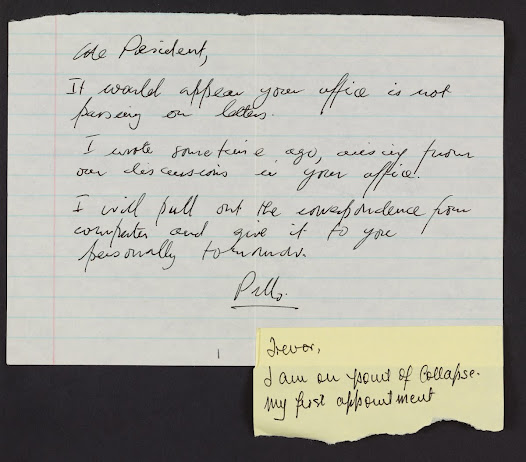 President,
It would appear your office is not
passing on letters.
I wrote sometime ago, arising from
our discussions in your office.
I will pull out the correspondence from
computer and give it to you
personally tomorrow.
Trevor,
I am on point of Collapse.
my first appointment